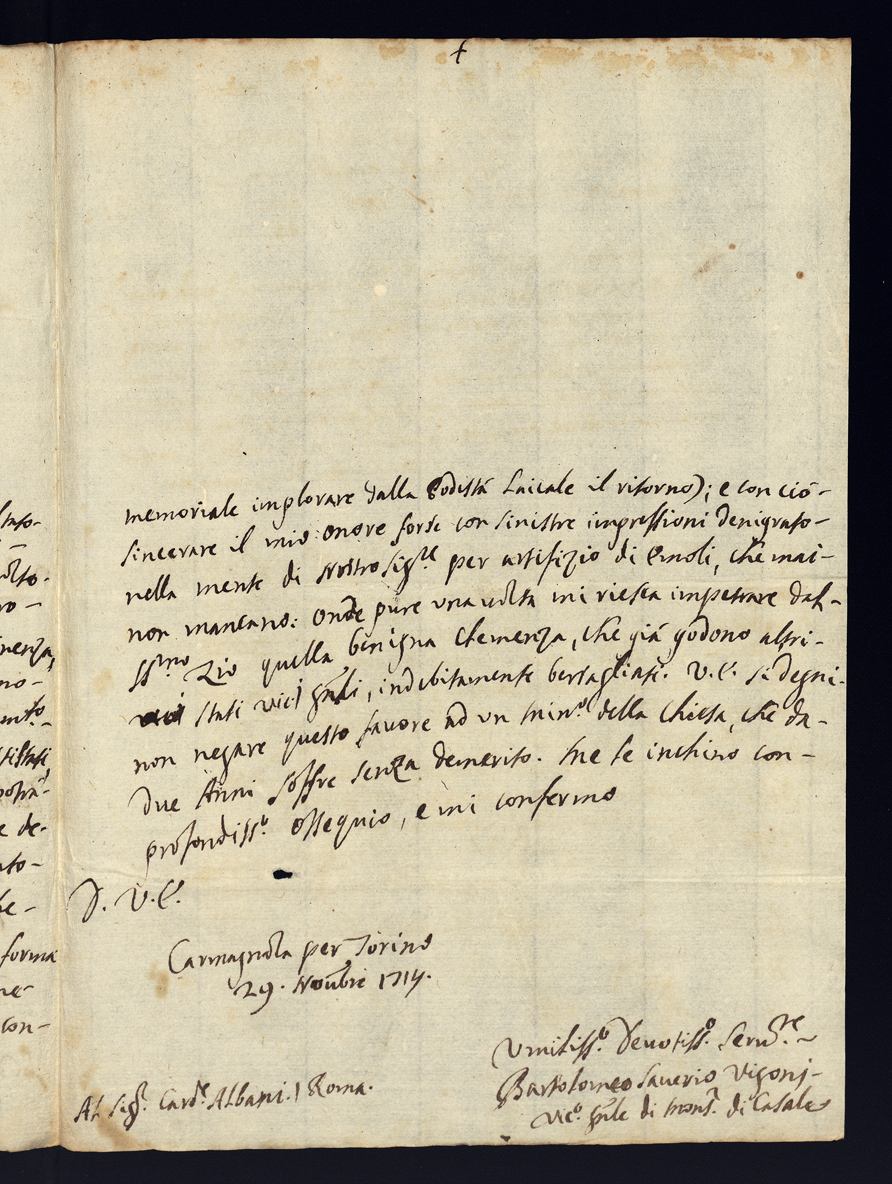 memoriale implorare dalla Podistà Laicale il ritorno); e con ciò-
sincerare il mio onore forse con sinistre impressioni denigrato-
nella mente di Nostro Sig.re per artifizio di Emoli, che mai-
non mancano: Onde pure una uolta mi riesca impetrare dal-
SS.mo Zio quella benigna Clemenza, che già godono altri-
stati vicj gnli, indebitamente bersagliati. V.E. si degni-
non negare questo fauore ad un Min.o della Chiesa, che da-
due Anni soffre senza demerito. Me le inchino con-
profondiss.o ossequio, e mi confermo
D. V.E.
Carmagnola per Torino
29. Noubre 1714.
Umiliss.o Deuotiss.o Seru.re
Bartolomeo Sauerio Vigonj-
Vic.o gnle di Mons.r di Casale
Al Sig.r Card.e Albani. / Roma.